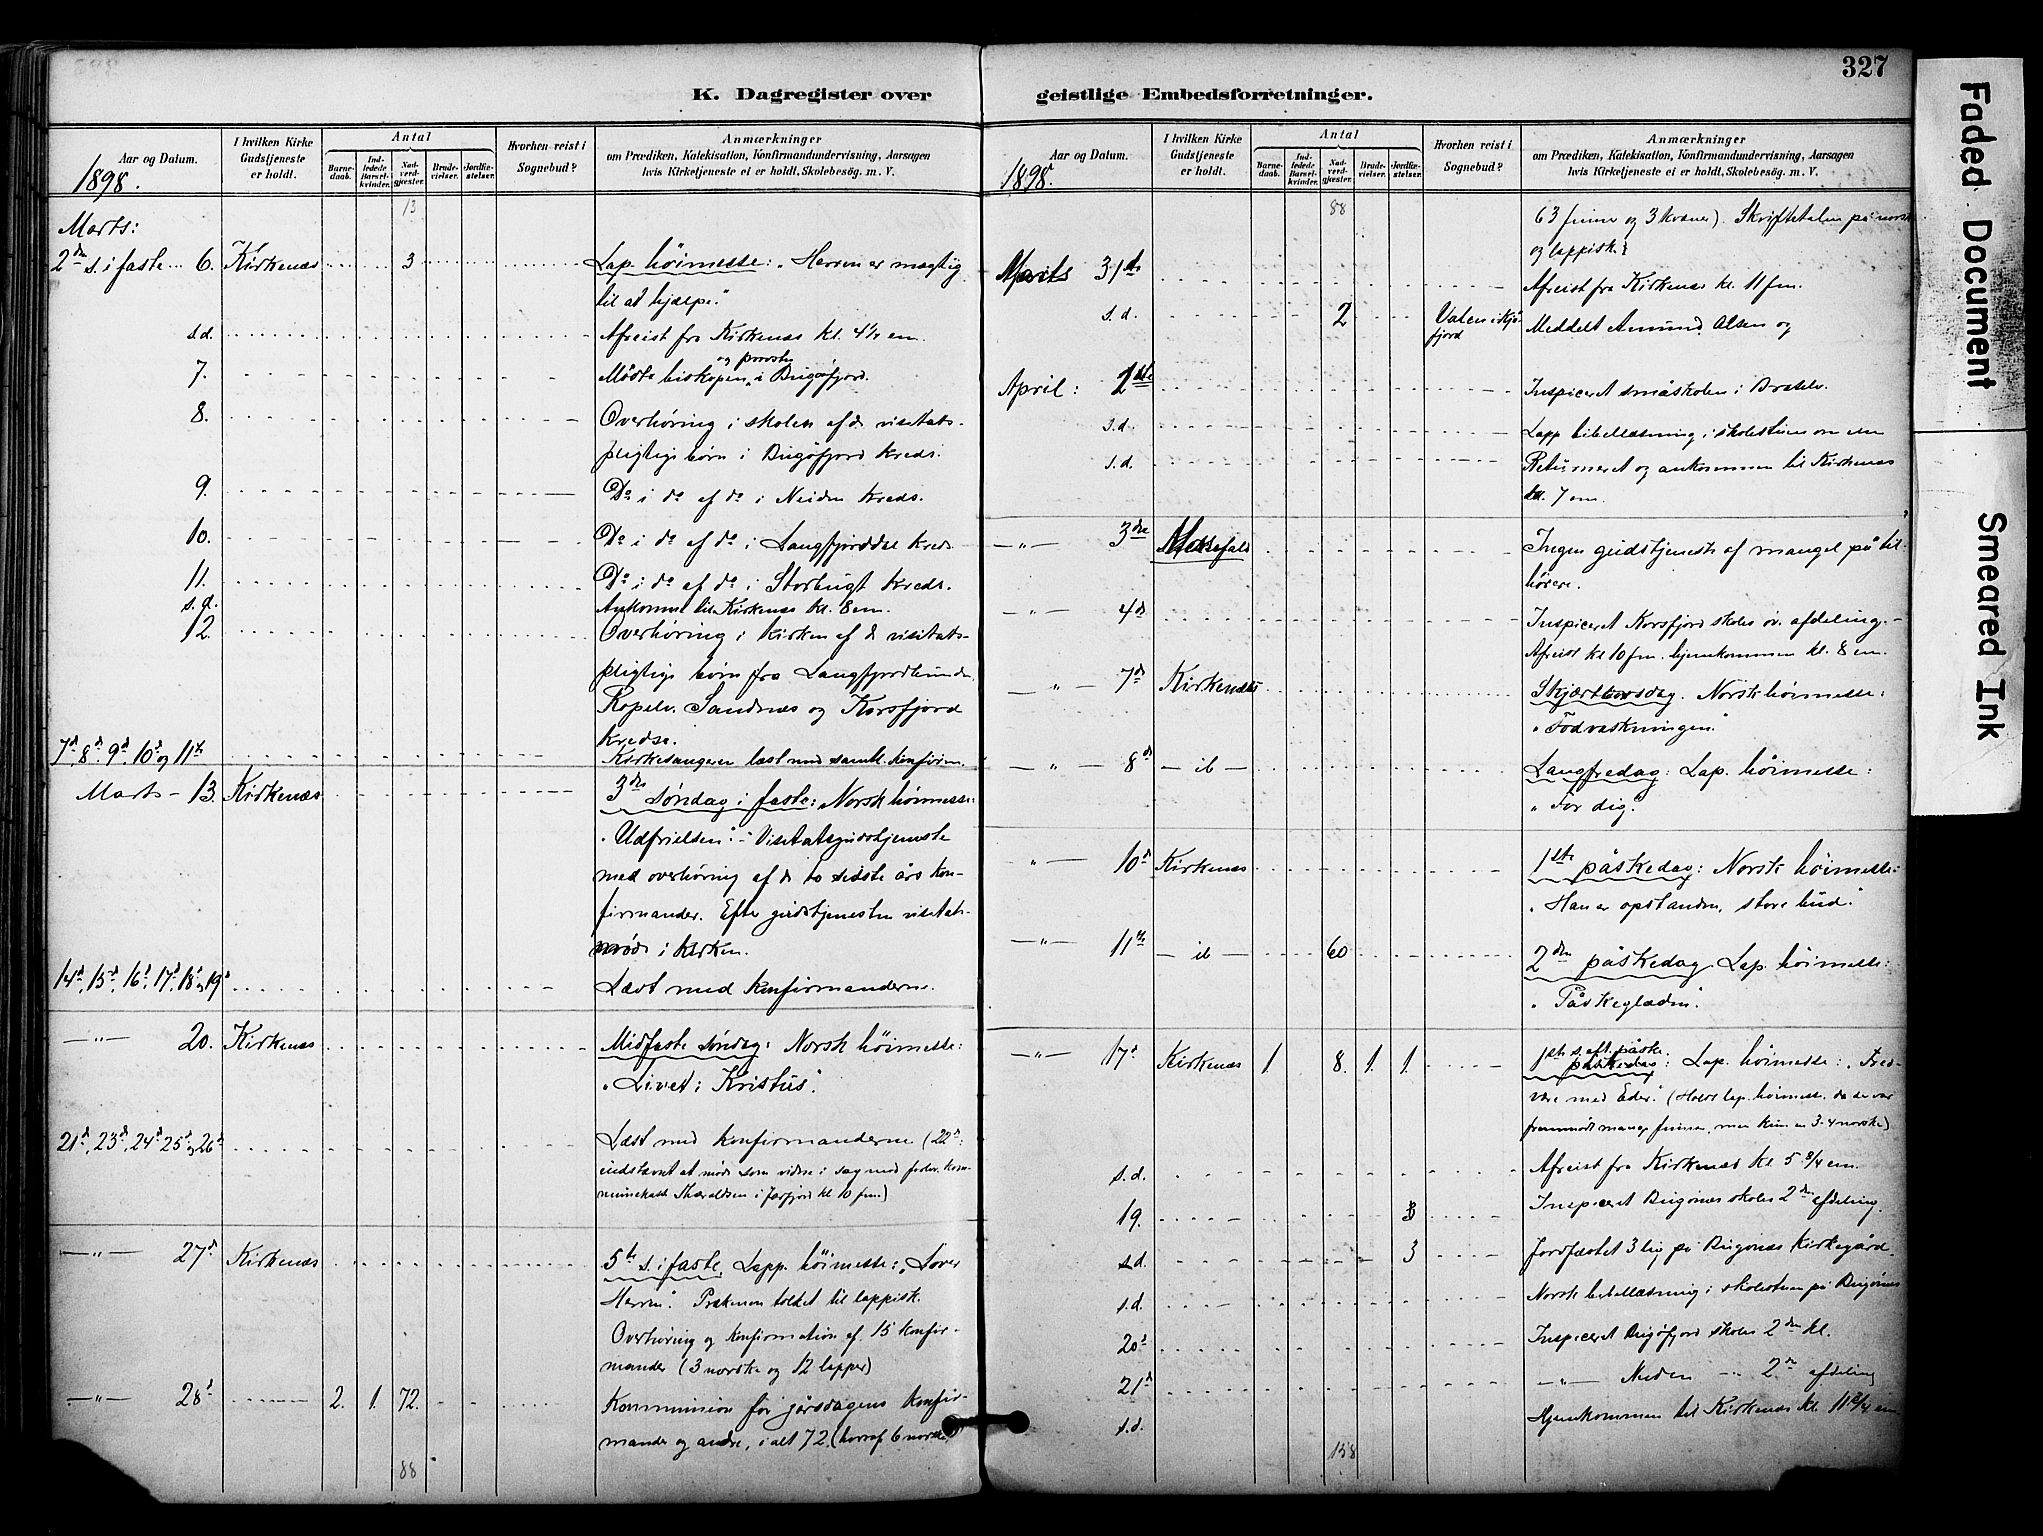 327
K. Dagregister over geistlige Embedsforretninger.
Faded Document
Smeared Ink
Aar og Datum.
1898.
I hvilken Kirke Gudstjeneste er holdt.
Antal
Barnedaab.
Indledede Barselkvinder.
Nadverdgjester.
Brudevielser.
Jordfæstelser.
Hvorhen reist i Sognebud?
Anmærkninger
om Prædiken, Katekisation, Konfirmandundervisning, Aarsagen
hvis Kirketjeneste ei er holdt, Skolebesøg. m. V.
13
Marts:
2den s. i faste 6. Kirkenæs 3 Lap. høimesse: "Herren er mægtig
til at hjælpe."
s.d. Afreist fra Kirkenæs kl. 4½ em.
7. Mødte biskopen og provsten i Bugøfjord.
8. Overhøring i skolen af de visitats-
pligtige børn i Bugøfjord kreds.
9. Do i do af do i Neiden kreds.
10. Do i do af do i Langfjorddal kreds.
11. Do i do af do i Storbugt kreds.
s.d. Ankommet til Kirkenæs kl. 8 em.
12. Overhøring i kirken af de visitats-
pligtige børn fra Langfjordbunds
Ropelv. Sandnæs og Korsfjord
kredse.
7d, 8d, 9d, 10d og 11te Kirkesangeren læst med samtl. konfirm.
Marts – 13. Kirkenæs 3die søndag i faste: Norsk høimesse:
"Udfrielsen". – Visitatsgudstjeneste
med overhøring af de to sidste års kon-
firmander. Efter gudstjenesten visitats-
møde i kirken.
14d, 15d, 16d, 17d, 18d og 19d Læst med konfirmanderne.
— " — 20. Kirkenæs Midfaste søndag: Norsk høimesse:
"Livet i Kristus".
21d, 23d, 24d 25d og 26d Læst med konfirmanderne (22d:
indstævnt at møde som vidne i sag mod forhv. kom-
munekass. Tharaldsen i Jarfjord kl 10 fm.)
— " — 27d Kirkenæs 5te s. i faste. Lapp. høimesse: "Lover
Herren". Prækenen tolket til lappisk.
Overhøring og konfirmation af 15 konfir-
mander (3 norske og 12 lapper)
— " — 28d 2. 1. 72. Kommunion for gårsdagens konfir-
mander og andre, i alt 72. (hvoraf 6 norske
88
Aar og Datum.
1898.
I hvilken Kirke Gudstjeneste er holdt.
Antal
Barnedaab.
Indledede Barselkvinder.
Nadverdgjester.
Brudevielser.
Jordfæstelser.
Hvorhen reist i Sognebud?
Anmærkninger
om Prædiken, Katekisation, Konfirmandundervisning, Aarsagen
hvis Kirketjeneste ei er holdt, Skolebesøg. m. V.
88
63 finner og 3 kvæner). Skriftetalen på norsk
og lappisk.
Marts 31te Afreist fra Kirkenæs kl. 11 fm.
s.d. 2 Valen i Kjø-
fjord Meddelt Amund Olsen og
April: 1ste Inspiceret småskolen i
s.d. Lapp. bibellæsning i skolestuen om em
s.d. Returneret og ankommen til Kirkenæs
kl. 7 em.
— " — 3die Messefald Ingen gudstjeneste af mangel på til-
hørere.
— " — 4d Inspiceret Korsfjord skoles øv. afdeling. –
Afreist kl 10 fm. hjemkommen kl. 8 em.
— " — 7d Kirkenæs Skjærtorsdag. Norsk høimesse:
"Fodvaskningen."
— " — 8d — ib — Langfredag: Lap. høimesse:
"For dig".
— " — 10d Kirkenæs 1ste påskedag: Norsk høimesse:
"Han er opstanden, store bud".
— " — 11te — ib — 60 2den påskedag Lap. høimesse:
"Påskeglæden".
— " — 17d Kirkenæs 1 8. 1. 1. 1ste s. eft. påske påskedag: Lap. høimesse: "Fred
være med Eder". (Holdt lap. høimesse, da der var
fremmødt mange finner, men kun en 3-4 norske)
s.d. Afreist fra Kirkenæs kl 5 3/4 em.
19. Inspiceret Bugønæs skoles 2den afdeling.
s.d. 3 Jordfæstet 3 lig på Bugønæs kirkegård.
s.d. Norsk bibellæsning i skolestuen på Bugønæs
20d Inspiceret Bugøfjord skoles 2den kl.
21d — " — Neiden — " 2den afdeling
s.d. Hjemkommen til Kirkenæs kl. 11 3/4 em
158